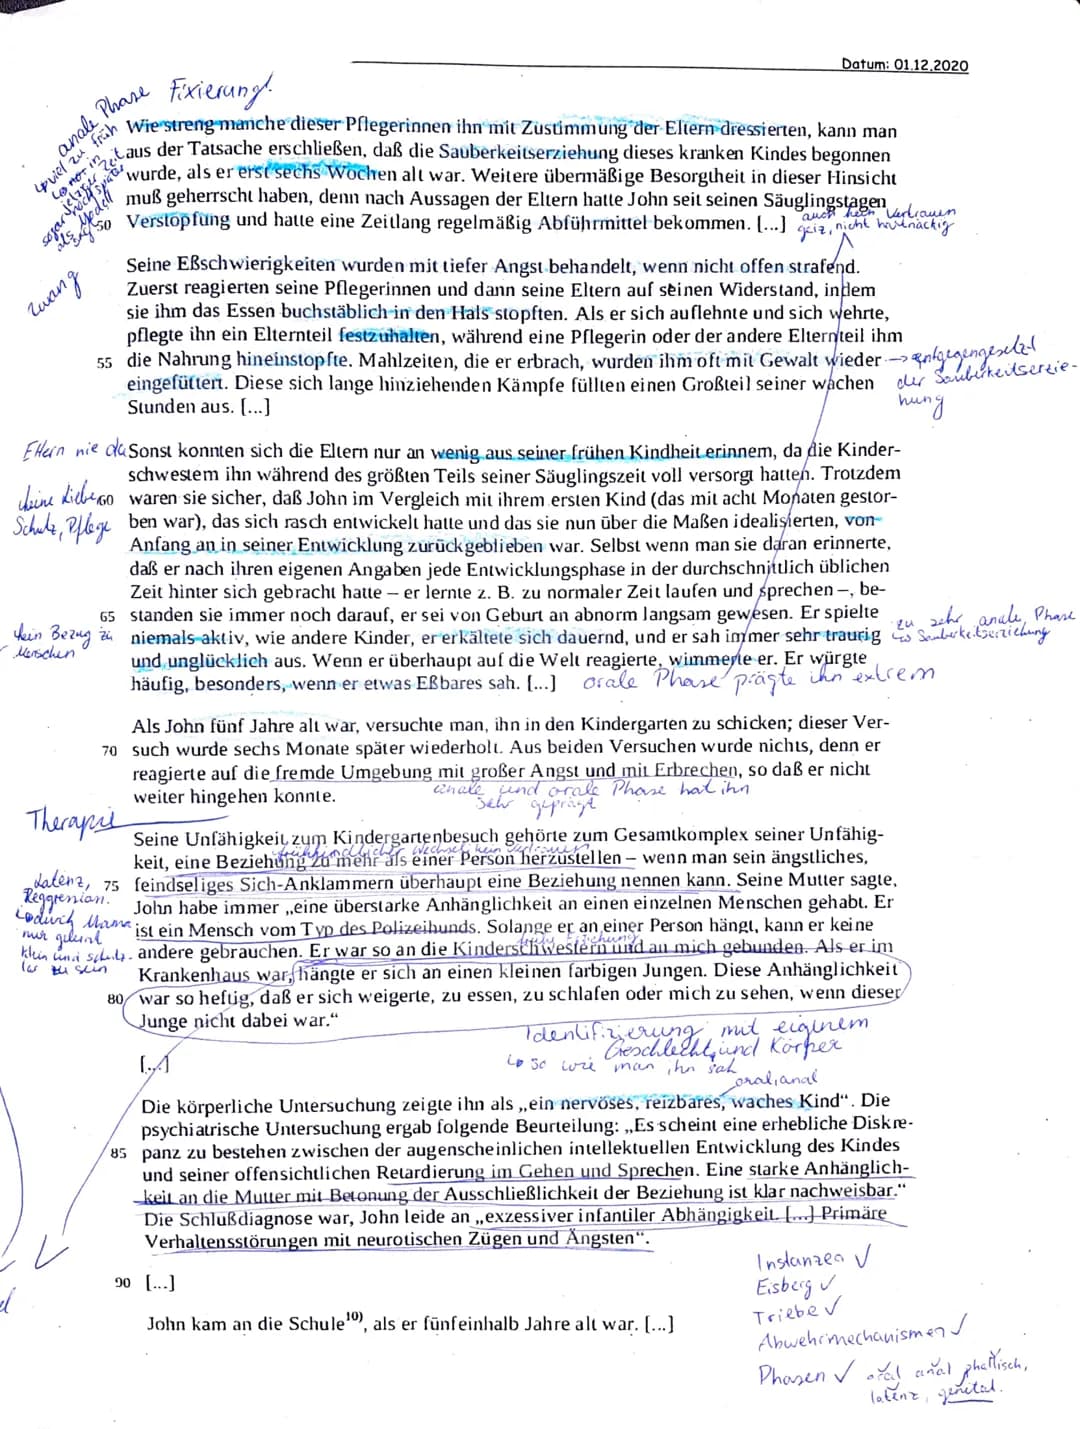 Datum: 01.12.2020
anale Phase Fixierung!
viel zu früh
Wie streng manche dieser Pflegerinnen ihn mit Zustimmung der Eltern dressierten, kann man
aus der Tatsache erschließen, daß die Sauberkeitserziehung dieses kranken Kindes begonnen
wurde, als er erst sechs Wochen alt war. Weitere übermäßige Besorgtheit in dieser Hinsicht
muß geherrscht haben, denn nach Aussagen der Eltern hatte John seit seinen Säuglingstagen
50 Verstopfung und hatte eine Zeitlang regelmäßig Abführmittel bekommen. [...]
auch kein Vertrauen
geiz, nicht hartnäckig
Zwang
Seine Eßschwierigkeiten wurden mit tiefer Angst behandelt, wenn nicht offen strafend.
Zuerst reagierten seine Pflegerinnen und dann seine Eltern auf seinen Widerstand, indem
sie ihm das Essen buchstäblich in den Hals stopften. Als er sich auflehnte und sich wehrte,
pflegte ihn ein Elternteil festzuhalten, während eine Pflegerin oder der andere Elternteil ihm
55 die Nahrung hineinstopfte. Mahlzeiten, die er erbrach, wurden ihm oft mit Gewalt wieder
eingefüttert. Diese sich lange hinziehenden Kämpfe füllten einen Großteil seiner wachen
Stunden aus. [...]
→ entgegengesetzt
der Sauberkeitserzie-
hung
Eltern nie da
Sonst konnten sich die Eltern nur an wenig aus seiner frühen Kindheit erinnern, da die Kinder-
schwestern ihn während des größten Teils seiner Säuglingszeit voll versorgt hatten. Trotzdem
keine Liebe
60 waren sie sicher, daß John im Vergleich mit ihrem ersten Kind (das mit acht Monaten gestor-
Schutz, Pflege
ben war), das sich rasch entwickelt hatte und das sie nun über die Maßen idealisierten, von
Anfang an in seiner Entwicklung zurückgeblieben war. Selbst wenn man sie daran erinnerte,
daß er nach ihren eigenen Angaben jede Entwicklungsphase in der durchschnittlich üblichen
Zeit hinter sich gebracht hatte – er lernte z. B. zu normaler Zeit laufen und sprechen –, be-
65 standen sie immer noch darauf, er sei von Geburt an abnorm langsam gewesen. Er spielte
kein Bezug zu
Menschen
niemals aktiv, wie andere Kinder, er erkältete sich dauernd, und er sah immer sehr traurig
zu sehr anale Phase
↳ Sauberkeitserziehung
und unglücklich aus. Wenn er überhaupt auf die Welt reagierte, wimmerte er. Er würgte
häufig, besonders, wenn er etwas Eßbares sah. [...]
orale Phase prägte ihn extrem
Als John fünf Jahre alt war, versuchte man, ihn in den Kindergarten zu schicken; dieser Ver-
70 such wurde sechs Monate später wiederholt. Aus beiden Versuchen wurde nichts, denn er
reagierte auf die fremde Umgebung mit großer Angst und mit Erbrechen, so daß er nicht
weiter hingehen konnte.
anale und orale Phase hat ihn
sehr geprägt
Therapie
Seine Unfähigkeit zum Kindergartenbesuch gehörte zum Gesamtkomplex seiner Unfähig-
frühkindlicher Wechsel kein Vertrauen
keit, eine Beziehung zu mehr als einer Person herzustellen – wenn man sein ängstliches,
Latenz,
75 feindseliges Sich-Anklammern überhaupt eine Beziehung nennen kann. Seine Mutter sagte,
Reggression.
John habe immer „eine überstarke Anhänglichkeit an einen einzelnen Menschen gehabt. Er
↳ durch Mama
nur gelernt
klein und schutz-
los zu sein
ist ein Mensch vom Typ des Polizeihunds. Solange er an einer Person hängt, kann er keine
andere gebrauchen. Er war so an die Kinderschwestern und an mich gebunden. Als er im
Krankenhaus war, hängte er sich an einen kleinen farbigen Jungen. Diese Anhänglichkeit
80 war so heftig, daß er sich weigerte, zu essen, zu schlafen oder mich zu sehen, wenn dieser
Junge nicht dabei war.“
Identifizierung mit eigenem
Geschlecht und Körper
↳ so wie man ihn sah
[...]
oral, anal
Die körperliche Untersuchung zeigte ihn als „ein nervöses, reizbares, waches Kind“. Die
psychiatrische Untersuchung ergab folgende Beurteilung: „Es scheint eine erhebliche Diskre-
85 panz zu bestehen zwischen der augenscheinlichen intellektuellen Entwicklung des Kindes
und seiner offensichtlichen Retardierung im Gehen und Sprechen. Eine starke Anhänglich-
keit an die Mutter mit Betonung der Ausschließlichkeit der Beziehung ist klar nachweisbar.“
Die Schlußdiagnose war, John leide an „exzessiver infantiler Abhängigkeit. [...] Primäre
Verhaltensstörungen mit neurotischen Zügen und Ängsten“.
90 [...]
John kam an die Schule10), als er fünfeinhalb Jahre alt war. [...]
Instanzen ✓
Eisberg ✓
Triebe ✓
Abwehrmechanismen ✓
Phasen ✓ oral anal phallisch,
latenz, genital.